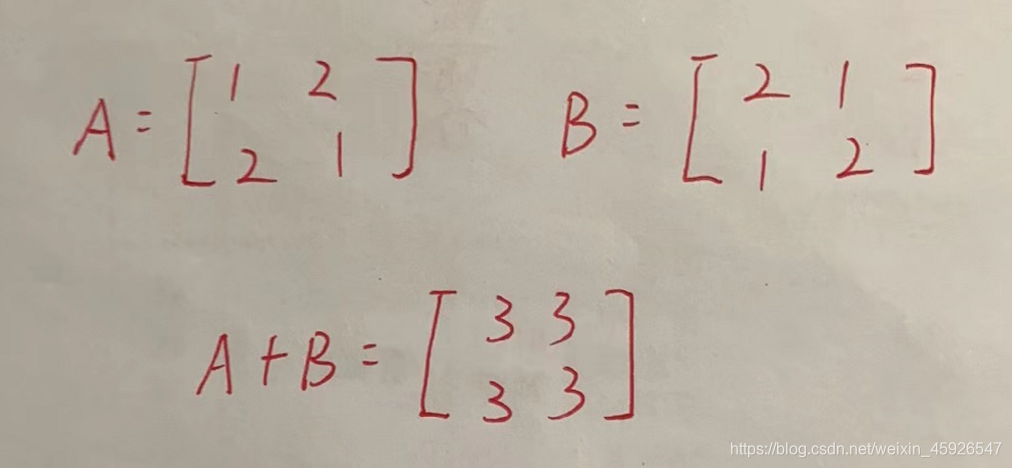 A = [ 1 2
2 1 ] B = [ 2 1
1 2 ]
A + B = [ 3 3
3 3 ]
https://blog.csdn.net/weixin_45926547